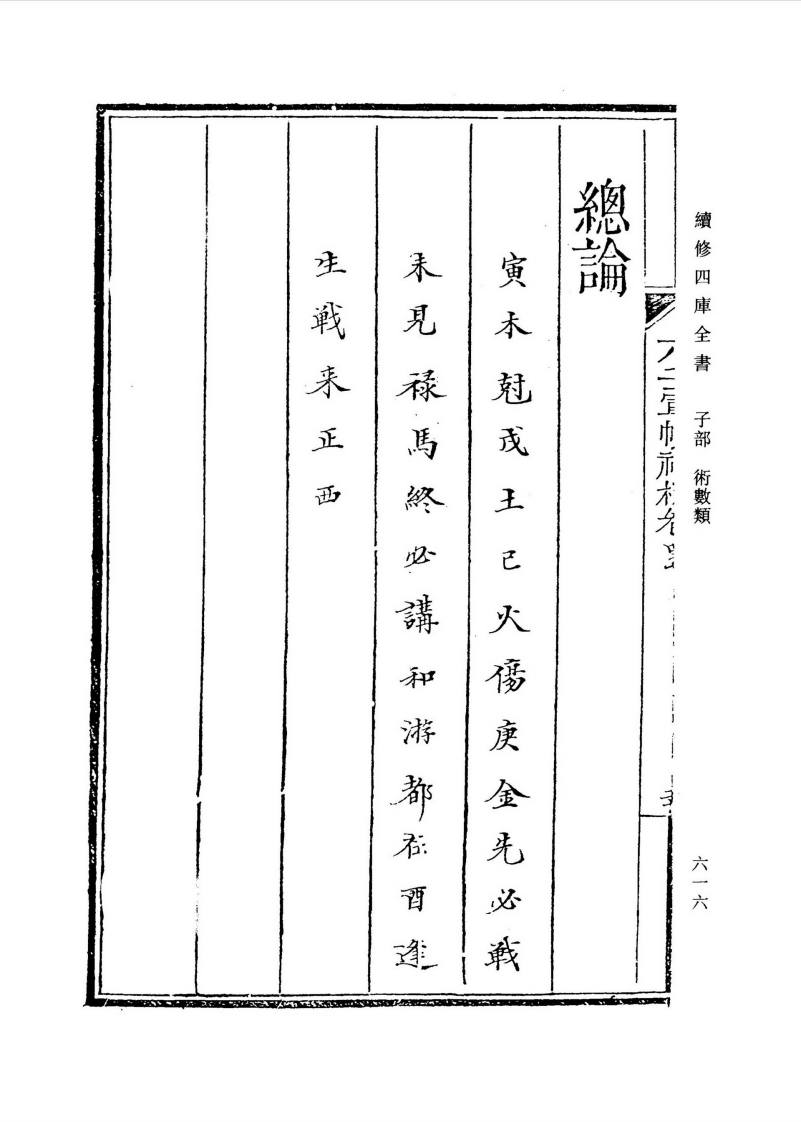 續修四庫全書 子部 術數類
六一六
總論
寅木尅戊王巳火傷庚金先必戰
未見禄馬終必講和游都在酉逢
生戰来正西